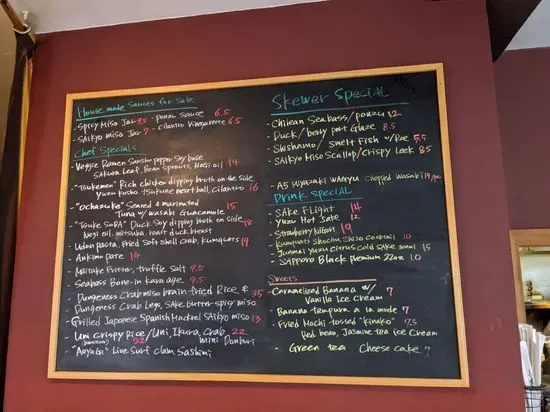 House made Sauces for Sale
- Spicy Miso Jar 9.5 - Ponzu Sauce 6.5
- SAikyo miso Jar 9 - Cilantro Vinegarette 6.5
Chef Specials
- Veggie Ramen Sansho pepper Soy base
Sakura Leaf, Bean Sprouts, Negi oil 14
- "Tsukemen" Rich chicken dipping broth on the side
Yuzu kosho, tsukune meatball, cilantro 16
- "ochazuke" Seared & marinated
Tuna w/ wasabi Guacamole 15
- "Tsuke SobA" Duck Soy dipping broth on side 18
Negi oil, mitsuba, roast duck breast
- Udon pasta, Fried Soft shell Crab, kumquats 19
- Ankimo pate 14
- Maitake Fritter, truffle Salt 9.5
- Seabass Bone-in kara age. 9.5
- Dungeness Crab miso brain fried Rice &
- Dungeness Crab Legs, SAke butter Spicy miso 35
- Grilled Japanese Spanish Mackrel SAikyo miso 13
- Uni Crispy Rice / Uni, Ikura, Crab 22
22 mini Donburi
- "AoyaGi" Live Surf clam Sashimi
Skewer Special
- Chilean Seabass/ponzu 12
- Duck/ berry port Glaze 8.5
- Shishamo/ Smelt Fish w/Roe 5.5
- SAikyo Miso Scallop/Crispy Leek 8.5
- A5 Miyazaki WAgyu Chopped Wasabi 19/pc
Drink Special
- SAke Flight 14
- Yuzu Hot Sake 12
- Strawberry Nigori 19
- Kumquats Shochu, Shiso Cocktail 10
- Junmai Yuzu Citrus Cold SAke 300ml 15
- SAPPORO Black Premium 22oz 10
Sweets
- Caramelized Banana w/ 7
Vanilla Ice Cream
- Banana tempura a la mode 7
- Fried Mochi-tossed "kinako" 7.5
Red bean, Jasmine tea ice Cream
- Green tea Cheese cake 7